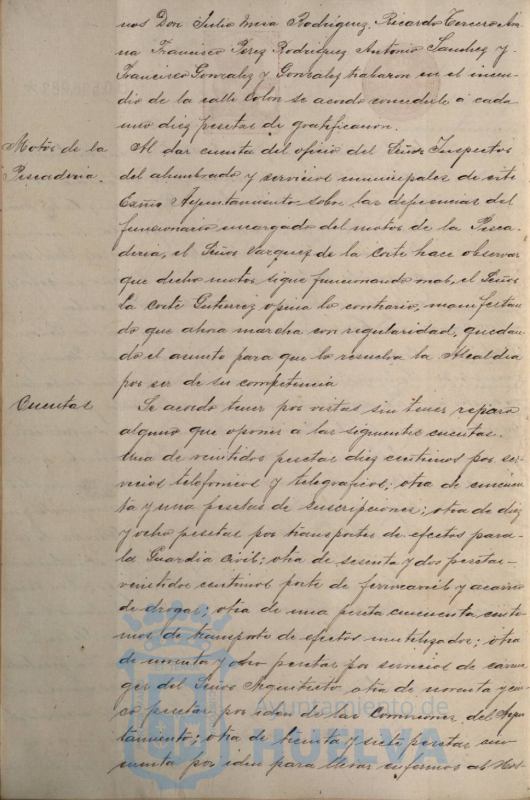 nos Don Julio Mera Rodriguez, Ricardo Tercero An-
na Francisco Perez Rodriguez Antonio Sanchez y
Francisco Gonzalez y Gonzalez trabaron en el incen-
dio de la calle Colon se acordo concederle á cada
uno diez pesetas de gratificacion.
Motor de la
Pescaderia.
Al dar cuenta del oficio del Señor Inspector
del alumbrado y servicios municipales de este
Excmo Ayuntamiento sobre las deficiencias del
funcionario encargado del motor de la Pesca-
deria, el Señor Vazquez de la Corte hace observar
que dicho motor sigue funcionando mal, el Señor
la Corte Gutierrez opina lo contrario, manifestan
do que ahora marcha con regularidad, quedan
do el asunto para que lo resuelva la Alcaldia
por ser de su competencia
Cuentas
Se acordo tener por vistas sin tener reparo
alguno que oponer á las siguientes cuentas.
Una de veintidos pesetas diez centimos por ser
vicios telefonicos y telegraficos; otra de cincuen
ta y una pesetas de suscripciones; otra de diez
y ocho pesetas por transportes de efectos para
la Guardia Civil; otra de sesenta y dos pesetas
veintidos centimos porte de ferrocarril y acarreo
de drogas; otra de una peseta cincuenta centi
mos de transporte de efectos inutilizados; otra
de noventa y ocho pesetas por servicios de carrua
ges del Señor Arquitecto, otra de noventa y cin
co pesetas por idem de las Comisiones del Ayun
tamiento; otra de treinta y siete pesetas cin
cuenta por idem para llevar enfermos al Hos-
Ayuntamiento de
HUELVA